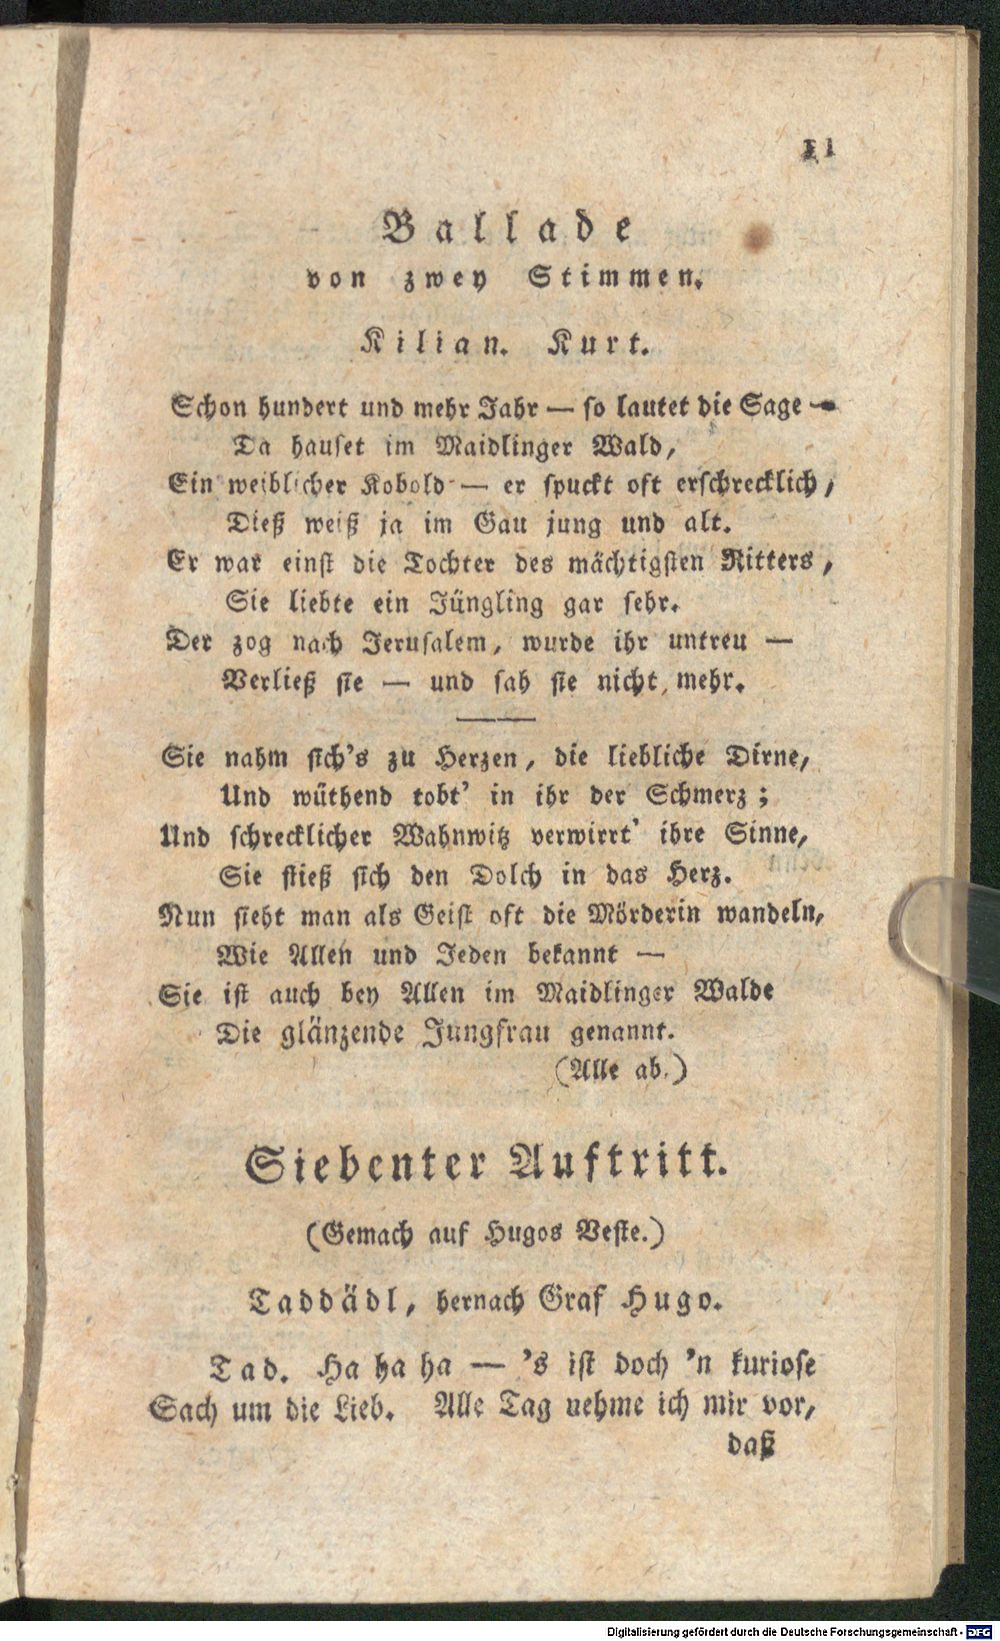 11
Ballade
von zwey Stimmen.
Kilian. Kurt.
Schon hundert und mehr Jahr — so lautet die Sage —
Da hauset im Maidlinger Wald,
Ein weiblicher Kobold — er spuckt oft erschrecklich,
Dieß weiß ja im Gau jung und alt.
Er war einst die Tochter des mächtigsten Ritters,
Sie liebte ein Jüngling gar sehr.
Der zog nach Jerusalem, wurde ihr untreu —
Verließ sie — und sah sie nicht mehr.
Sie nahm sich's zu Herzen, die liebliche Dirne,
Und wüthend tobt' in ihr der Schmerz;
Und schrecklicher Wahnwitz verwirrt' ihre Sinne,
Sie stieß sich den Dolch in das Herz.
Nun sieht man als Geist oft die Mörderin wandeln,
Wie Allen und Jeden bekannt —
Sie ist auch bey Allen im Maidlinger Walde
Die glänzende Jungfrau genannt.
(Alle ab.)
Siebenter Auftritt.
(Gemach auf Hugos Veste.)
Taddädl, hernach Graf Hugo.
Tad. Ha ha ha — 's ist doch 'n kuriose
Sach um die Lieb. Alle Tag nehme ich mir vor,
daß
Digitalisierung gefördert durch die Deutsche Forschungsgemeinschaft - DFG